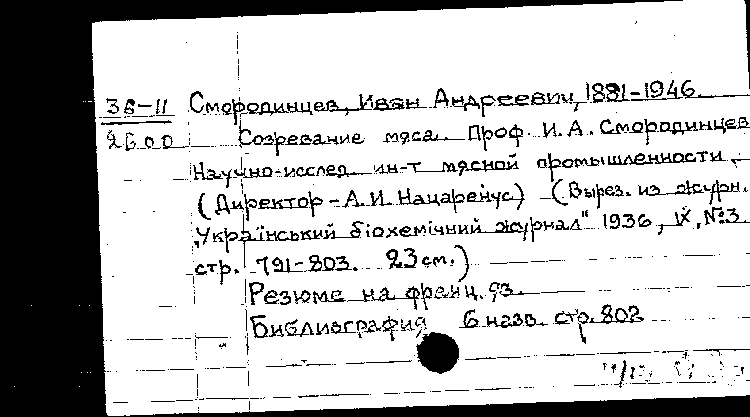 36-11 Смородинцев, Иван Андреевич, 1881-1946.
2600 Созревание мяса. Проф. И.А. Смородинцев
Научно-исслед. ин-т мясной промышленности.
(Директор - А.И. Нацаренус) (Вырез. из журн.
"Український біохемічний журнал" 1936, IX, №3.
стр. 791-803. 23 см.)
Резюме на франц. яз.
Библиография 6 назв. стр. 802